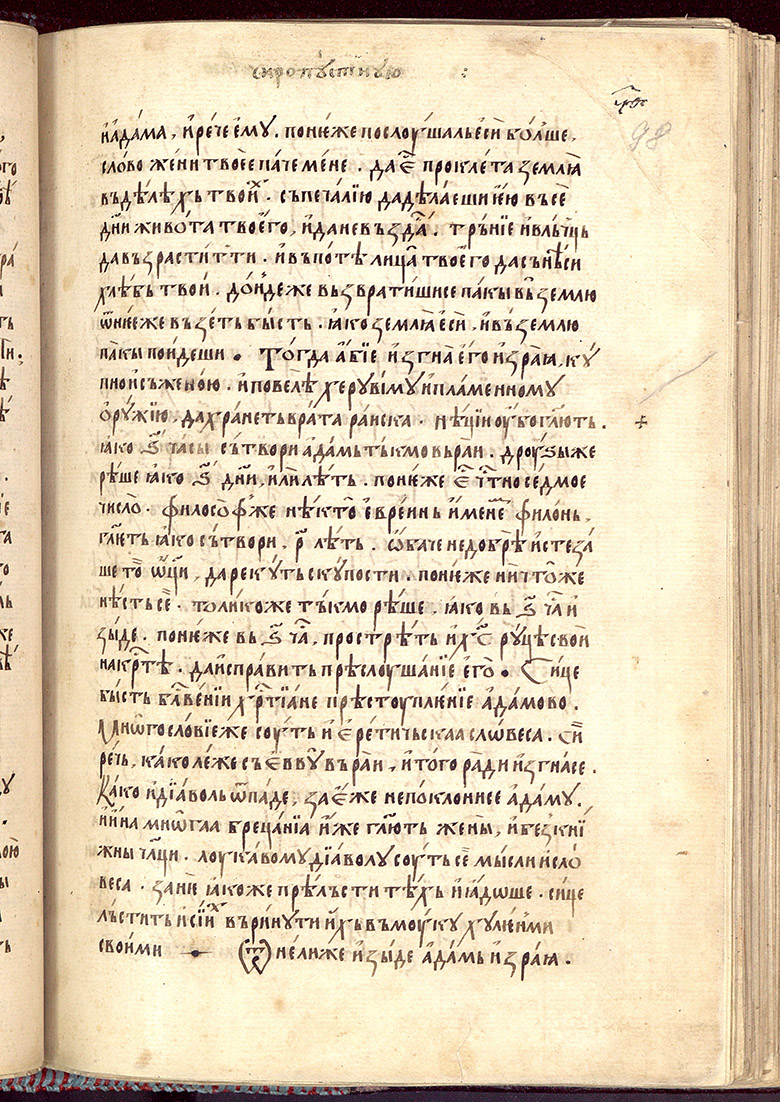 сиропꙋстнꙋю :
98
иАдама , и рече емꙋ . понеже послоушаль еси больше ,
слово жени твоее паче мене . да е҃ проклета землꙗ
въ дѣлѣхь твои х҃ . съ печалїю да дѣлаеши ю въ се
дн҃и живота твоего , и да не въздас҃ . трънїе и влъчць
да възрастит ти . и въ потѣ лица твоего да сънѣси
хлѣбь твои . доидеже възвратишисе пакы въ землю
ѿ неже възеть бысть . ꙗко землꙗ еси . и въ землю
пакы поидеши . Тогда абїе изгна его из раꙗ , кꙋ
пно и съ женою . и повелѣ херꙋвімꙋ и пламенномꙋ
орꙋжїю , да хранеть врата раиска . нѣции оубо гл҃ють .
ꙗко ѕ҃ часы сътвори адамь тькмо вь раи . дроуѕыже
рѣше ꙗко ѕ҃ дн҃и , или лѣть . понеже е҃ чт҃но седмое
число . философже нѣкто еврѣинь именем҃ филонь ,
гл҃ѥть ꙗко сътвори , р҃ лѣть . ѡбаче не добрѣ истеза
ше то҃ ѡц҃и , да рекꙋть скꙋпости . понеже ничтоже
нѣсть се҃ . толикоже тькмо рѣше . ꙗко вь ѕ҃ ча҃ и
зыде . понеже вь ѕ҃ ча҃ , прострѣть и х҃с рꙋцѣ свои
на кр҃тѣ . да исправить прѣслоушанїе его . Сице
бысть бл҃вѣнїи хр҃тїане прѣстоупленїе адамово .
Мнѡгословїе же соуть и еретичьскаа словеса . си҃
речь , како леже съ еввꙋ въ раи , и того ради изгнасе .
Како и дїаволь ѿпаде , за еже не поклонисе адамꙋ .
и ина мнѡгаа брецанїа иже гл҃ють жены , и безкни
жны чл҃ци . лоукавомꙋ дїаволꙋ соуть се҃ мысли и сло
веса . зане ꙗкоже прѣльсти тѣхь и ꙗдоше . сице
льстить и сїих҃ въринꙋти ихь въ моукꙋ хꙋленми
своими нелиже изыде адамь из раꙗ .